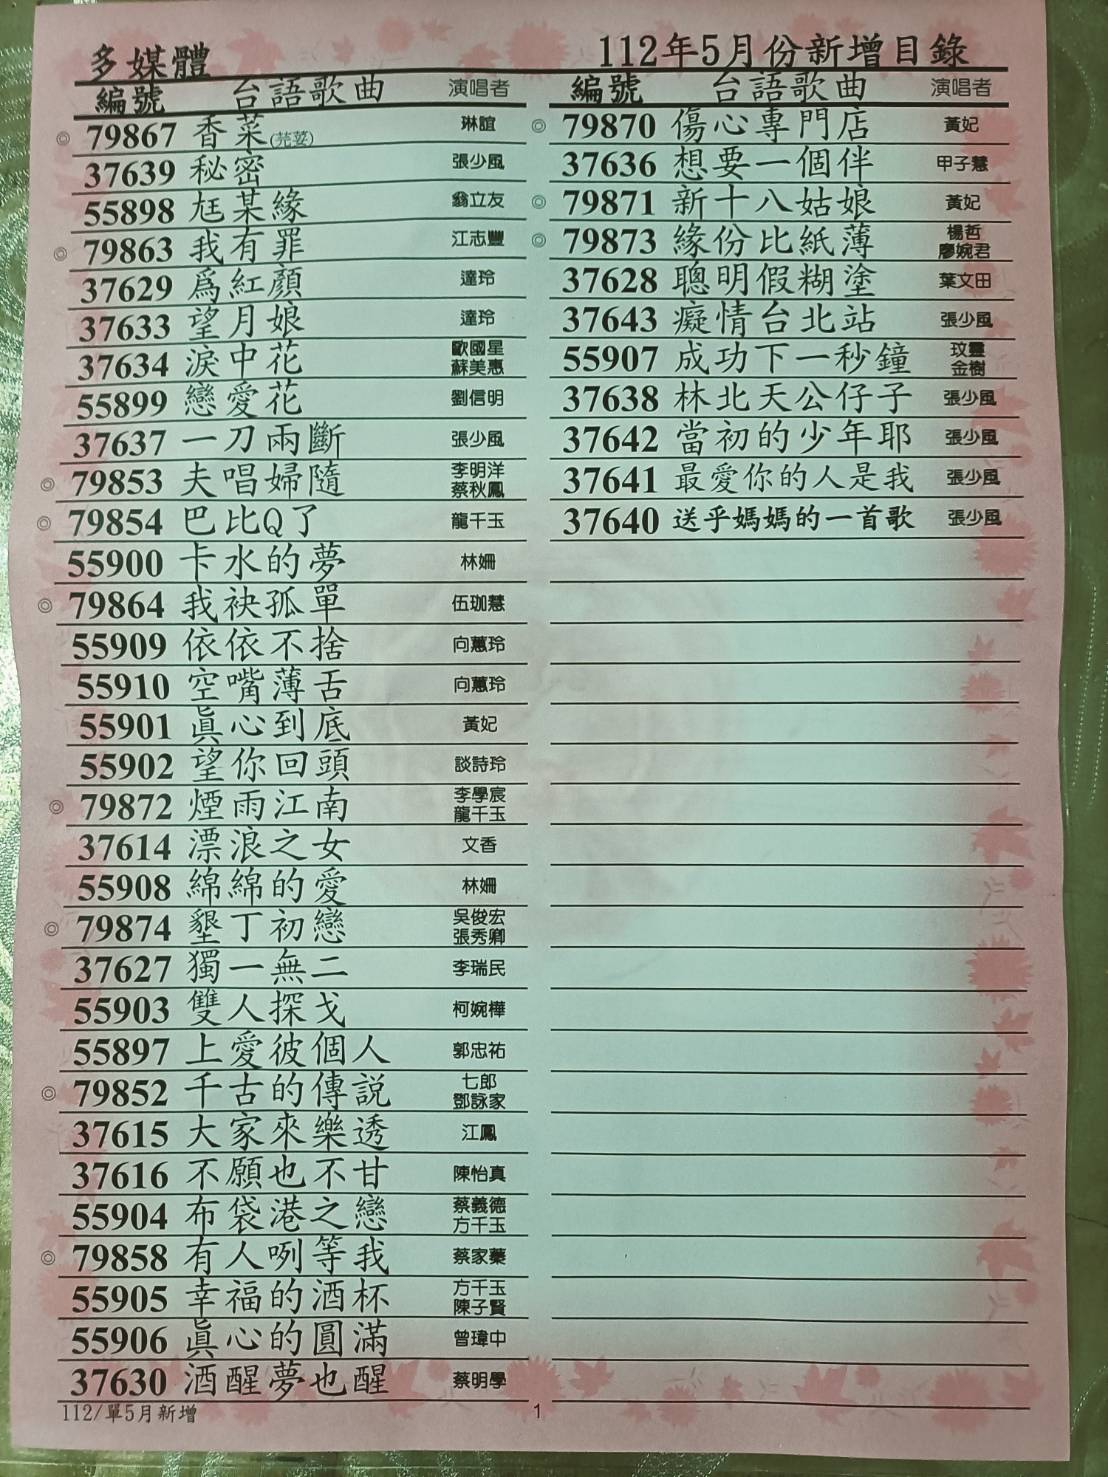 多媒體
112年5月份新增目錄
編號 台語歌曲 演唱者
◎ 79867 香菜(芫荽) 琳誼
37639 秘密 張少風
55898 尪某緣 翁立友
◎ 79863 我有罪 江志豐
37629 為紅顏 達玲
37633 望月娘 達玲
37634 淚中花 歐國星 蘇美惠
55899 戀愛花 劉信明
37637 一刀兩斷 張少風
◎ 79853 夫唱婦隨 李明洋 蔡秋鳳
◎ 79854 巴比Q了 龍千玉
55900 卡水的夢 林姍
◎ 79864 我袂孤單 伍珈慧
55909 依依不捨 向蕙玲
55910 空嘴薄舌 向蕙玲
55901 眞心到底 黃妃
55902 望你回頭 談詩玲
◎ 79872 煙雨江南 李學宸 龍千玉
37614 漂浪之女 文香
55908 綿綿的愛 林姍
◎ 79874 墾丁初戀 吳俊宏 張秀卿
37627 獨一無二 李瑞民
55903 雙人探戈 柯婉樺
55897 上愛彼個人 郭忠祐
◎ 79852 千古的傳說 七郎 鄧詠家
37615 大家來樂透 江鳳
37616 不願也不甘 陳怡真
55904 布袋港之戀 蔡義德 方千玉
◎ 79858 有人咧等我 蔡家蓁
55905 幸福的酒杯 方千玉 陳子賢
55906 眞心的圓滿 曾瑋中
37630 酒醒夢也醒 蔡明學
編號 台語歌曲 演唱者
◎ 79870 傷心專門店 黃妃
37636 想要一個伴 甲子慧
◎ 79871 新十八姑娘 黃妃
◎ 79873 緣份比紙薄 楊哲 廖婉君
37628 聰明假糊塗 葉文田
37643 癡情台北站 張少風
55907 成功下一秒鐘 玟靈 金樹
37638 林北天公仔子 張少風
37642 當初的少年耶 張少風
37641 最愛你的人是我 張少風
37640 送乎媽媽的一首歌 張少風
112/單5月新增
1